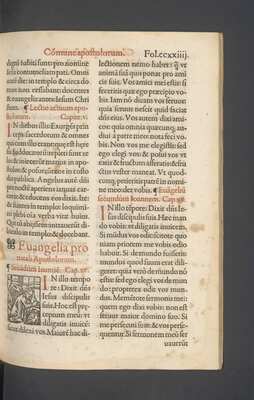 Cōmune apostolorum. Fol.ccxxiij.
digni habiti sunt pro nomine
Iesu contumeliam pati. Omni
autē die in templo & circa do
mos non cessabant docentes
& euangelizantes Iesum Chri
stum. ¶ Lectio actuum apo-
stolorum. Capite. v.
IN diebus illis: Exurgēs prin
ceps sacerdotum & omnes
qui cum illo
Angelus autē dñi
per noctē aperiens ianuas carce
in templo
plebi oīa verba vitæ huius.
Qui cū audissent intrauerunt di
luculo in templū & docebant.
Euangelia pro
natali Apostolorum.
secundum Ioannē. Cap. xv.
IN illo tempo
re: Dixit dñs
Iesus discipulis
suis. Hoc est præ
ceptum meū: vt
diligatis inuicē:
sicut dilexi vos. Maiorē hac di-
lectionem nemo habet: q̃ vt
animā suā quis ponat pro ami
cis suis. Vos amici mei estis: si
feceritis quæ ego præcipio vo-
bis. Iam nō dicam vos seruos:
quia seruus nescit quid faciat
dñs eius. Vos autem dixi ami-
cos: quia omnia quæcunq; au
diui a patre meo: nota feci vo-
bis. Non vos me elegistis: sed
ego elegi vos: & posui vos vt
eatis & fructum afferatis: & fru
ctus vester maneat. Vt quodcū
que petieritis patrē in nomi
ne meo: det vobis. ¶ Euangeliū
secundum Ioannem. Cap. xv.
IN illo tēpore: Dixit dñs Ie-
sus discipulis suis: Hæc man
do vobis: vt diligatis inuicēm.
Si mūdus vos odit: scitote quia
me priorem vobis odio
habuit. Si de mundo fuissetis:
mundus quod suum erat dili-
geret: quia verò de mūndo nō
estis: sed ego elegi vos de mun
do: propterea odit vos mun-
dus. Mementote sermonis mei:
quem ego dixi vobis: non est
seruus maior domino suo. Si
me persecuti sunt: & vos perse-
quentur. Si sermonem meū ser
uauerūt